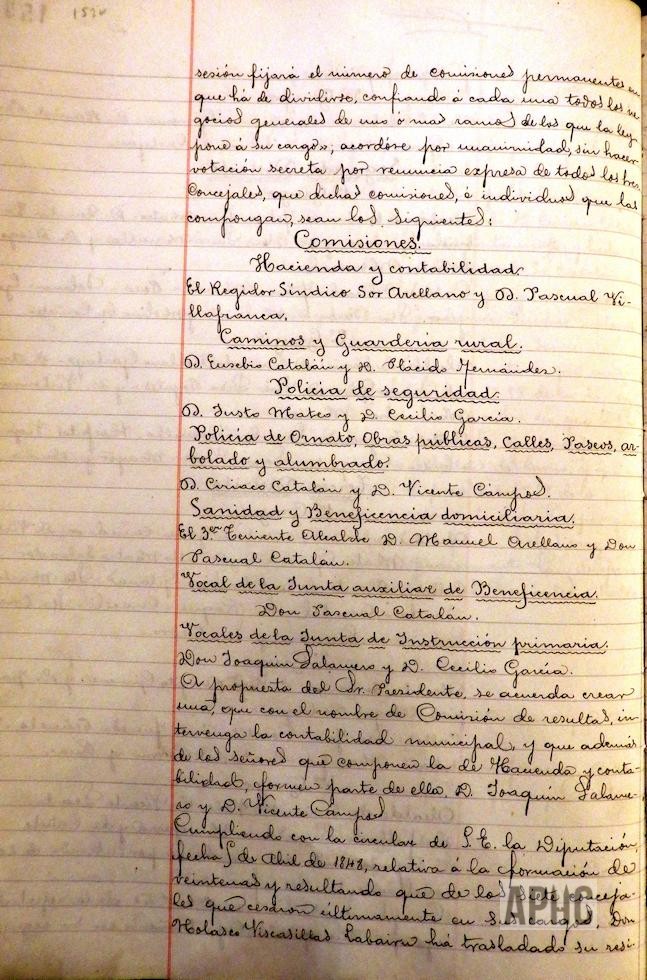 sesión fijará el número de comisiones permanentes en
que há de dividirse, confiando á cada una todos los ne
gocios generales de uno ó mas ramos de los que la ley
pone á su cargo»; acordóse por unanimidad, sin hacer
votación secreta por renuncia expresa de todos los tres
Concejales, que dichas comisiones, é individuos que las
compongan, sean los siguientes:
Comisiones.
Hacienda y contabilidad
El Regidor Síndico Sor Arellano y D. Pascual Vi-
llafranca.
Caminos y Guardería rural.
D. Eusebio Catalán y D. Plácido Fernández.
Policía de seguridad.
D. Justo Mateo y D. Cecilio García.
Policía de Ornato, Obras públicas, Calles, Paseos, ar-
bolado y alumbrado.
D. Ciriaco Catalán y D. Vicente Campos.
Sanidad y Beneficencia domiciliaria.
El 3er Teniente Alcalde D. Manuel Arellano y Don
Pascual Catalán.
Vocal de la Junta auxiliar de Beneficencia.
Don Pascual Catalán.
Vocales de la Junta de Instrucción primaria.
Don Joaquin Salanero y D. Cecilio García.
A propuesta del Sr. Presidente, se acuerda crear
una, que con el nombre de Comisión de resultas, in
tervenga la contabilidad municipal, y que además
de los señores que componen la de Hacienda y conta-
bilidad, formen parte de ella, D. Joaquin Salane-
ro y D. Vicente Campos
Cumpliendo con la circular de S. E. la Diputación,
fecha 5 de Abril de 1848, relativa á la formación de
veintenas y resultando que de los siete conceja-
les que cesaron últimamente en sus cargos, Don
Nolasco Viscasillas Labairu há trasladado su resi-
APUC